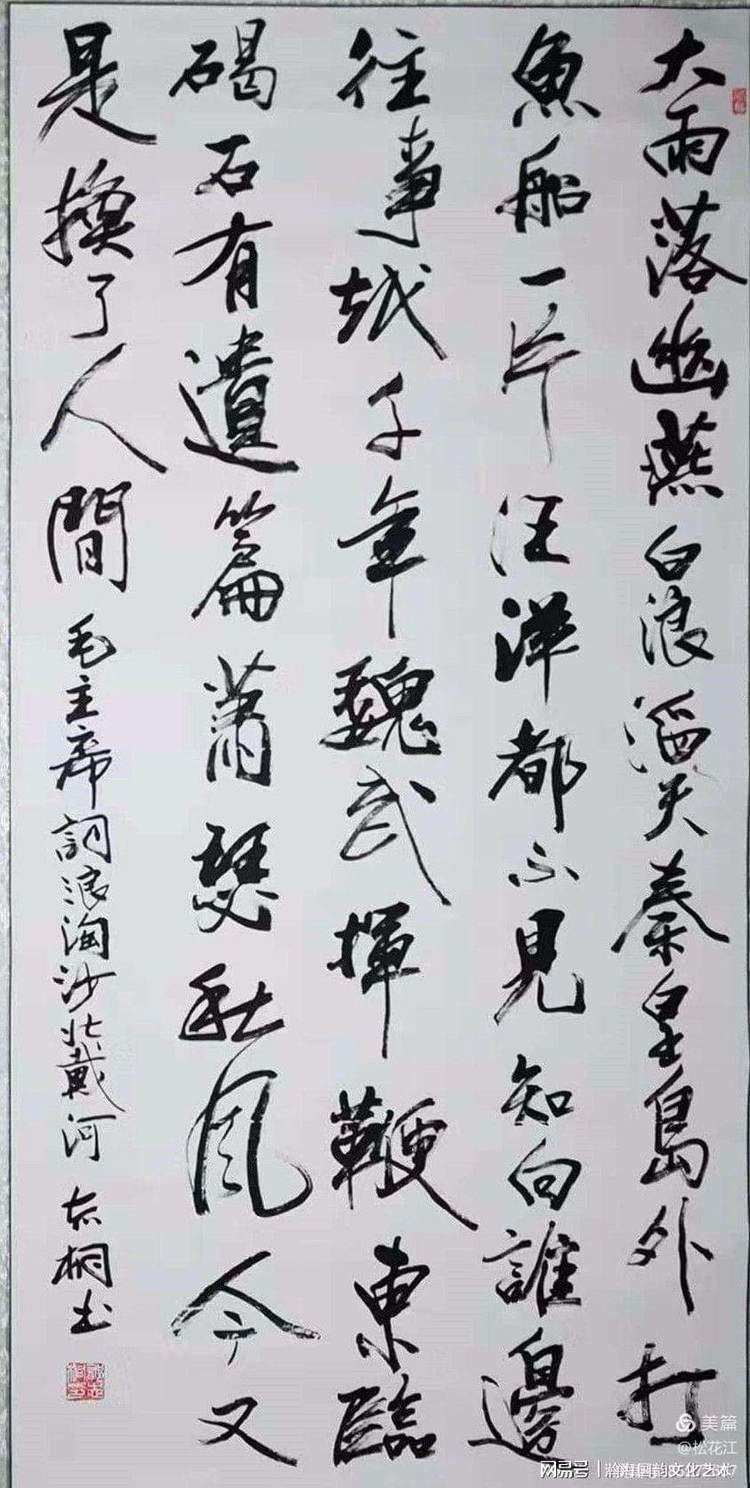 大雨落幽燕白浪滔天秦皇島外打
魚船一片汪洋都不見知向誰邊
往事越千年魏武揮鞭東臨
碣石有遺篇蕭瑟秋風今又
是換了人間
毛主席詞浪淘沙北戴河 桐书
美篇
@松花江
网易号 | 瀚海国韵文化艺术